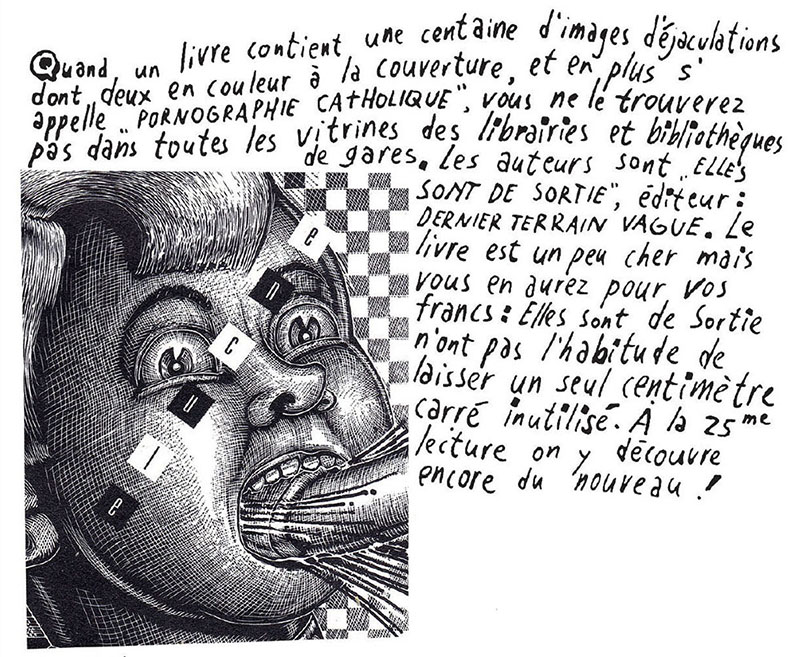 Quand un livre contient une centaine d'images d'éjaculations
dont deux en couleur à la couverture, et en plus s'
appelle „PORNOGRAPHIE CATHOLIQUE", vous ne le trouverez
pas dans toutes les vitrines des librairies et bibliothèques
de gares. Les auteurs sont „ELLES
SONT DE SORTIE", éditeur:
DERNIER TERRAIN VAGUE. Le
livre est un peu cher mais
vous en aurez pour vos
francs: Elles sont de Sortie
n'ont pas l'habitude de
laisser un seul centimètre
carré inutilisé. À la 25me
lecture on y découvre
encore du nouveau!
e
n
c
u
l
e